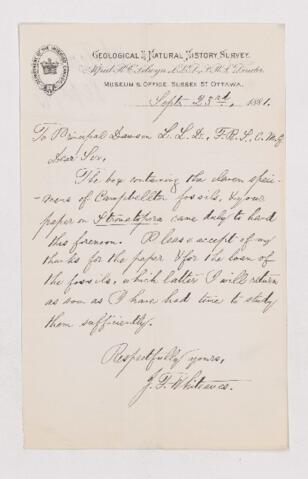 GEOLOGICAL & NATURAL HISTORY SURVEY.
Alfred R. C. Selwyn, L.L.D., F.R.S., Director.
MUSEUM & OFFICE, SUSSEX ST OTTAWA.
Sept. 23rd, 1881.
To Principal Dawson L.L.D., F.R.S., C.M.G
Dear Sir,
The box containing the eleven speci-
-mens of Campbellton fossils, & your
paper on Stromatopora came duly to hand
this forenoon. Please accept of my
thanks for the paper & for the loan of
the fossils, which latter I will return
as soon as I have had time to study
them sufficiently.
Respectfully yours,
J. F. Whiteaves.